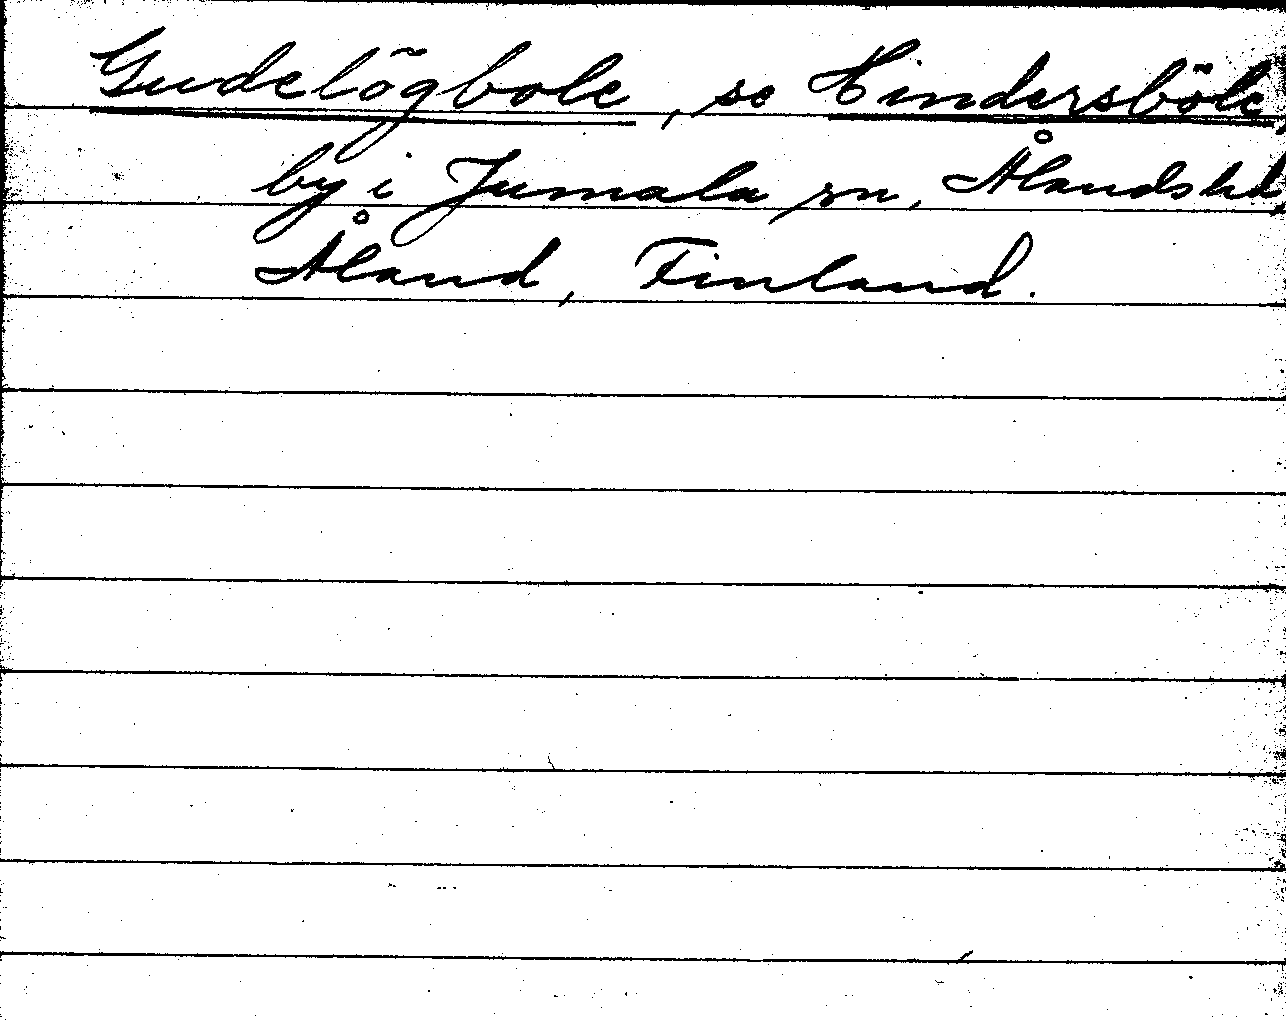 Gudelögbole, se Hindersböle,
by i Jumala sn, Ålands hd,
Åland, Finland.